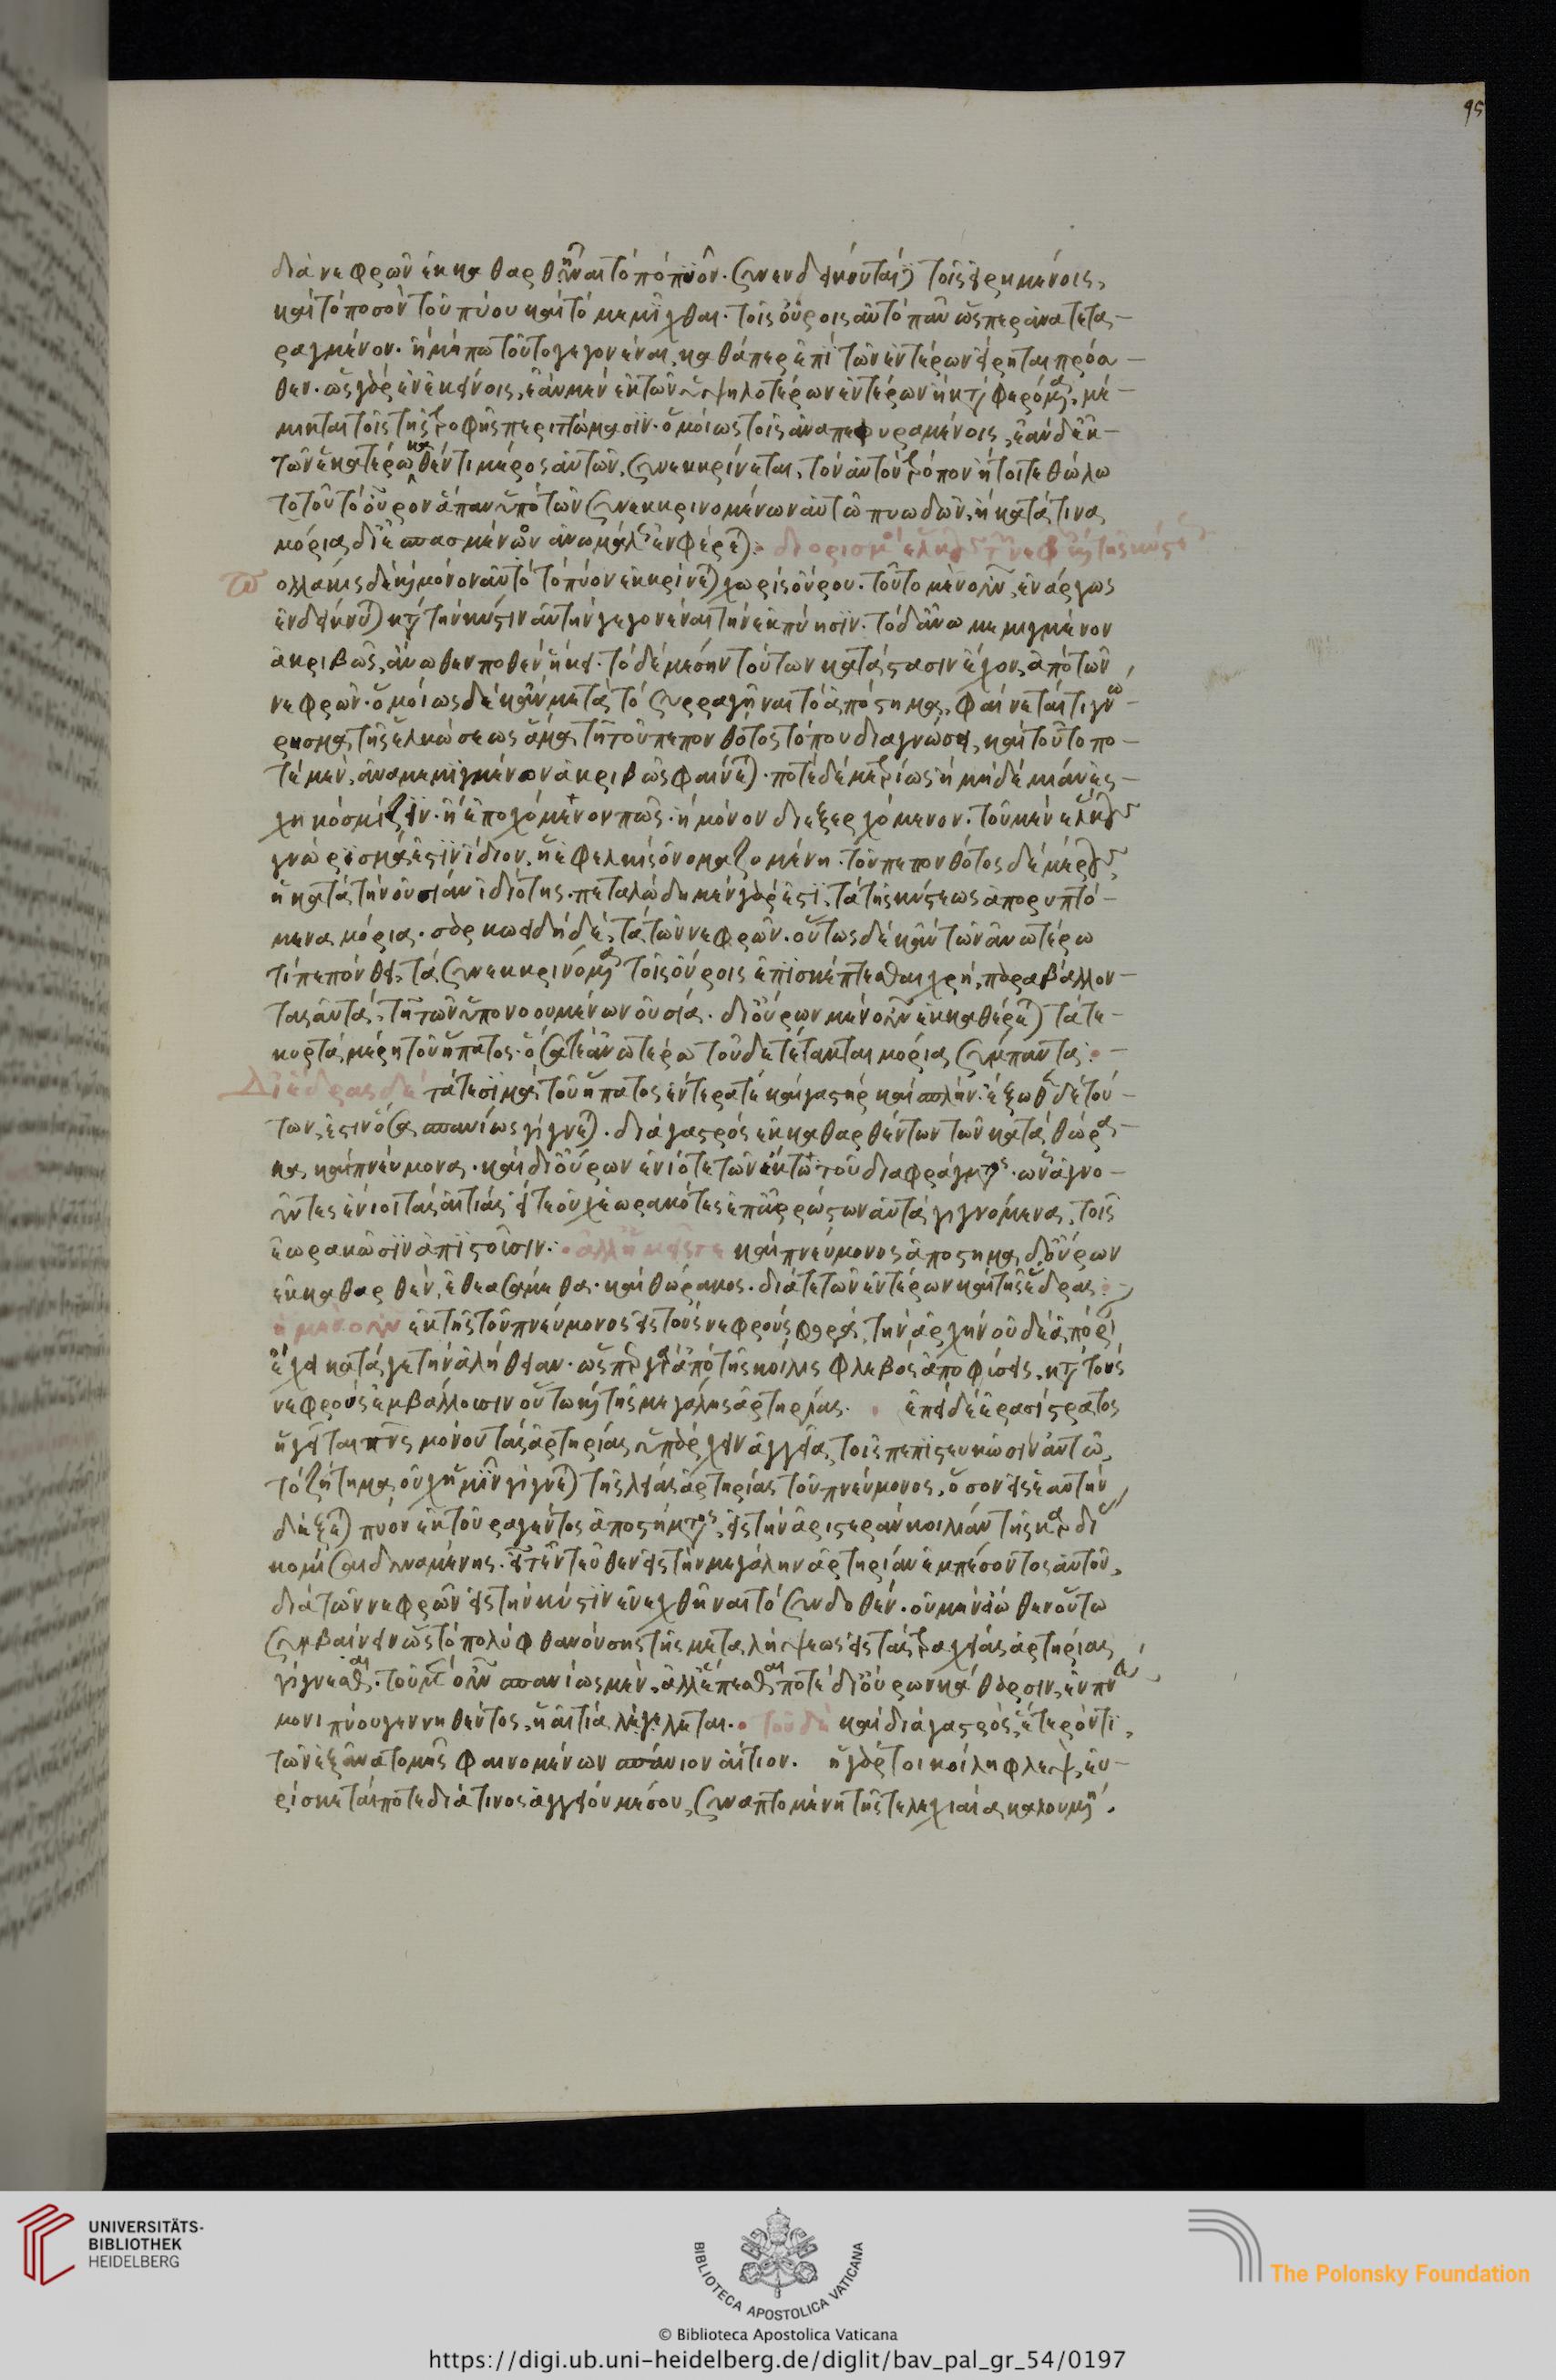 95
διὰ νεφρῶν ἐκκαθαρθῆναι τὸ πύον. συνενδείκνυται τοῖς εἰρημένοις,
καὶ τὸ ποσὸν τοῦ πύου καὶ τὸ μεμίχθαι. τοῖς οὔροις αὐτὸ πᾶν ὥσπερ ἀνατετα-
ραγμένον. ἢ μήπω τοῦτο γεγονέναι, καθάπερ ἐπὶ τῶν ἐντέρων εἴρηται πρόσ-
θεν. ὡς γὰρ ἐν ἐκείνοις, ἐὰν μὲν ἐκ τῶν ὑψηλοτέρων ἐντέρων ἥκη φερόμενα, μέ-
μικται τοῖς τῆς τροφῆς περιττώμασιν. ὁμοίως τοῖς ἀναπεφυραμένοις, ἐὰν δ' ἐκ
τῶν ἑκατέρωθέν τι μέρος αὐτῶν, συνεκκρίνεται, τὸν αὐτὸν τρόπον ἤτοι τεθόλω
το τοῦτο οὖρον ἅπαν ὑπὸ τῶν συνεκκρινομένων αὐτῶ πυωδῶν, ἢ κατά τινα
μόρια διεσπασμένον ἀνωμάλως ἐμφέρεται.
Πολλάκις δὲ καὶ μόνον αὐτὸ τὸ πύον ἐκκρίνεται χωρὶς οὔρου. τοῦτο μὲν οὖν, ἐναργῶς
ἐνδείκνυται κατὰ τὴν κύστιν αὐτὴν γεγονέναι τὴν ἐκπύησιν. τὸ δ' ἄνω μεμιγμένον
ἀκριβῶς, ἄνωθεν ποθὲν ἥκει. τὸ δὲ μέσην τούτων κατάστασιν ἔχον, ἀπὸ τῶν
νεφρῶν. ὁμοίως δὲ κἀν μετὰ τὸ συρραγῆναι τὸ ἀπόστημα, φαίνεταί τι γνώ-
ρισμα τῆς ἑλκώσεως ἅμα τῆ τοῦ πεπονθότος τόπου διαγνώσει, καὶ τοῦτο πο-
τὲ μὲν, ἀναμεμιγμένον ἀκριβῶς φαίνεται. ποτὲ δὲ μετρίως ἢ μηδὲ μιᾶν ἐς-
χηκὸς μίξιν. ἢ ἐποχόμενον πως. ἢ μόνον διεξερχόμενον. τοῦ μὲν ἕλκους
γνώρισμά ἐστιν ἴδιον, ἡ ἐφελκὶς ὀνομαζομένη. τοῦ πεπονθότος δὲ μέρους
ἡ κατὰ τὴν οὐσίαν ἰδιότης. πεταλώδη μὲν γάρ ἐστι, τὰ τῆς κύστεως ἀπορυπτό-
μενα μόρια. σαρκωειδῆ δὲ, τὰ τῶν νεφρῶν. οὕτως δὲ κἀν τῶν ἀνωτέρω
τι πεπόνθει, τὰ συνεκκρινόμενα τοῖς οὔροις ἐπισκέπτεσθαι χρὴ, παραβάλλον-
τας αὐτὰ, τῆ τῶν ὑπονοουμένων οὐσία. δι' οὔρων μὲν οὖν ἐκκαθαίρεται τά τε
κυρτὰ μέρη τοῦ ἥπατος. ὅσα τε ἀνωτέρω τοῦδε τέτακται μορίας σύμπαντα.
Δι' ἕδρας δὲ τά τε σιμὰ τοῦ ἥπατος ἔντερά τε καὶ γαστὴρ καὶ σπλήν. ἔξωθεν δὲ τού-
των, ἔστιν ὅσα σπανίως γίγνεται. διὰ γαστρὸς ἐκκαθαρθέντων τῶν κατὰ θώρα-
κα, καὶ πνεύμονα. καὶ δι' οὔρων ἐνίοτε τῶν ἐκτὸς τοῦ διαφράγματος. ὧν ἀγνο-
οῦντες ἔνιοι τὰς αἰτίας εἴτε οὐχ ἑωρακότες ἐπ' ἀρρώστων αὐτὰ γιγνόμενα, τοῖς
ἑωρακόσιν ἀπιστοῦσιν. ἀλλ' ἡμεῖς τε καὶ πνεύμονος ἀπόστημα, δι' οὔρων
ἐκκαθαρθὲν, ἐθεασάμεθα. καὶ θώρακος. διά τε τῶν ἐντέρων καὶ τῆς ἕδρας.
ἡ μὲν οὖν ἐκ τῆς τοῦ πνεύμονος εἰς τοὺς νεφροὺς φορὰ, τὴν ἀρχὴν οὐδὲ ἄπορον
ἔχει κατά γε τὴν ἀλήθειαν. ὥσπερ γὰρ ἀπὸ τῆς κοίλης φλεβὸς ἀποφύσεις, κατὰ τοὺς
νεφροὺς ἐμβάλλουσιν οὕτω καὶ τῆς μεγάλης ἀρτηρίας. ἐπεὶ δὲ ἐρασίστρατος
ἡγεῖται πνεύματος μόνου τὰς ἀρτηρίας ὑπάρχειν ἀγγεῖα, τοῖς πεπιστευκόσιν αὐτῶ,
τὸ ζήτημα, οὐχ ἡμῖν γίγνεται τῆς λείας ἀρτηρίας τοῦ πνεύμονος, ὅσον εἰς ἑαυτὴν
δέξεται πύον ἐκ τοῦ ῥαγέντος ἀποστήματος, εἰς τὴν ἀριστερὰν κοιλίαν τῆς καρδίας
κομίσαι δυναμένης. εἶτ' ἐντεῦθεν εἰς τὴν μεγάλην ἀρτηρίαν ἐμπεσόντος αὐτοῦ,
διὰ τῶν νεφρῶν εἰς τὴν κύστιν ἐνεχθῆναι τὸ συνδοθέν. οὐ μὴν εἴωθεν οὕτω
συμβαίνειν ὡς τὸ πολὺ φθανούσης τῆς μεταλήψεως εἰς τὰς τραχείας ἀρτηρίας
γίγνεσθαι. τοῦ μὲν οὖν σπανίως μὲν, ἀλλ' ἕπεσθαι ποτὲ δι' οὔρων κάθαρσιν, ἐν πνεύ-
μονι πύου γεννηθέντος, ἡ αἰτία λέλεκται. τοῦ δὲ καὶ διὰ γαστρὸς, ἕτερόν τι,
τῶν ἐξ ἀνατομῆς φαινομένων σπάνιον αἴτιον. ἡ γάρ τοι κοίλη φλὲψ, εὑ-
ρίσκεταί ποτε διά τινος ἀγγείου μέσου, συναπτομένη τῆς τελεχιαία καλουμένη.
UNIVERSITÄTS-
BIBLIOTHEK
HEIDELBERG
BIBLIOTECA APOSTOLICA VATICANA
The Polonsky Foundation
© Biblioteca Apostolica Vaticana
https://digi.ub.uni-heidelberg.de/diglit/bav_pal_gr_54/0197